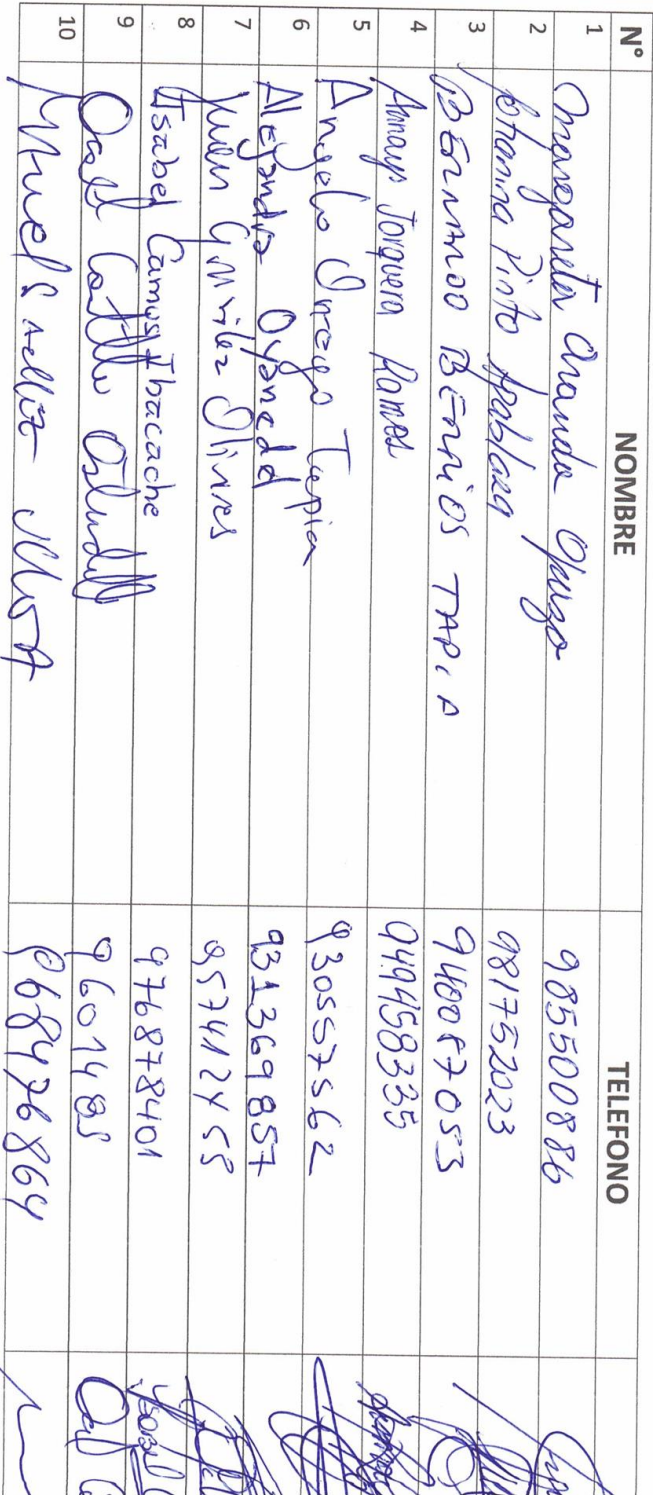 N° NOMBRE TELEFONO
1 Margarita Aranda Opazo 985500886
2 Johanna Pinto Apablaza 981752023
3 BERNARDO BERRIOS TAPIA 940087053
4 Annays Jorquera Ramos 949458335
5 Angelo Orrego Tapia 930557562
6 Alejandro Oyanedel 931369857
7 González Olivares 957412455
8 Isabel Camus Ibacache 976878401
9 Castillo 9601485
10 968476864